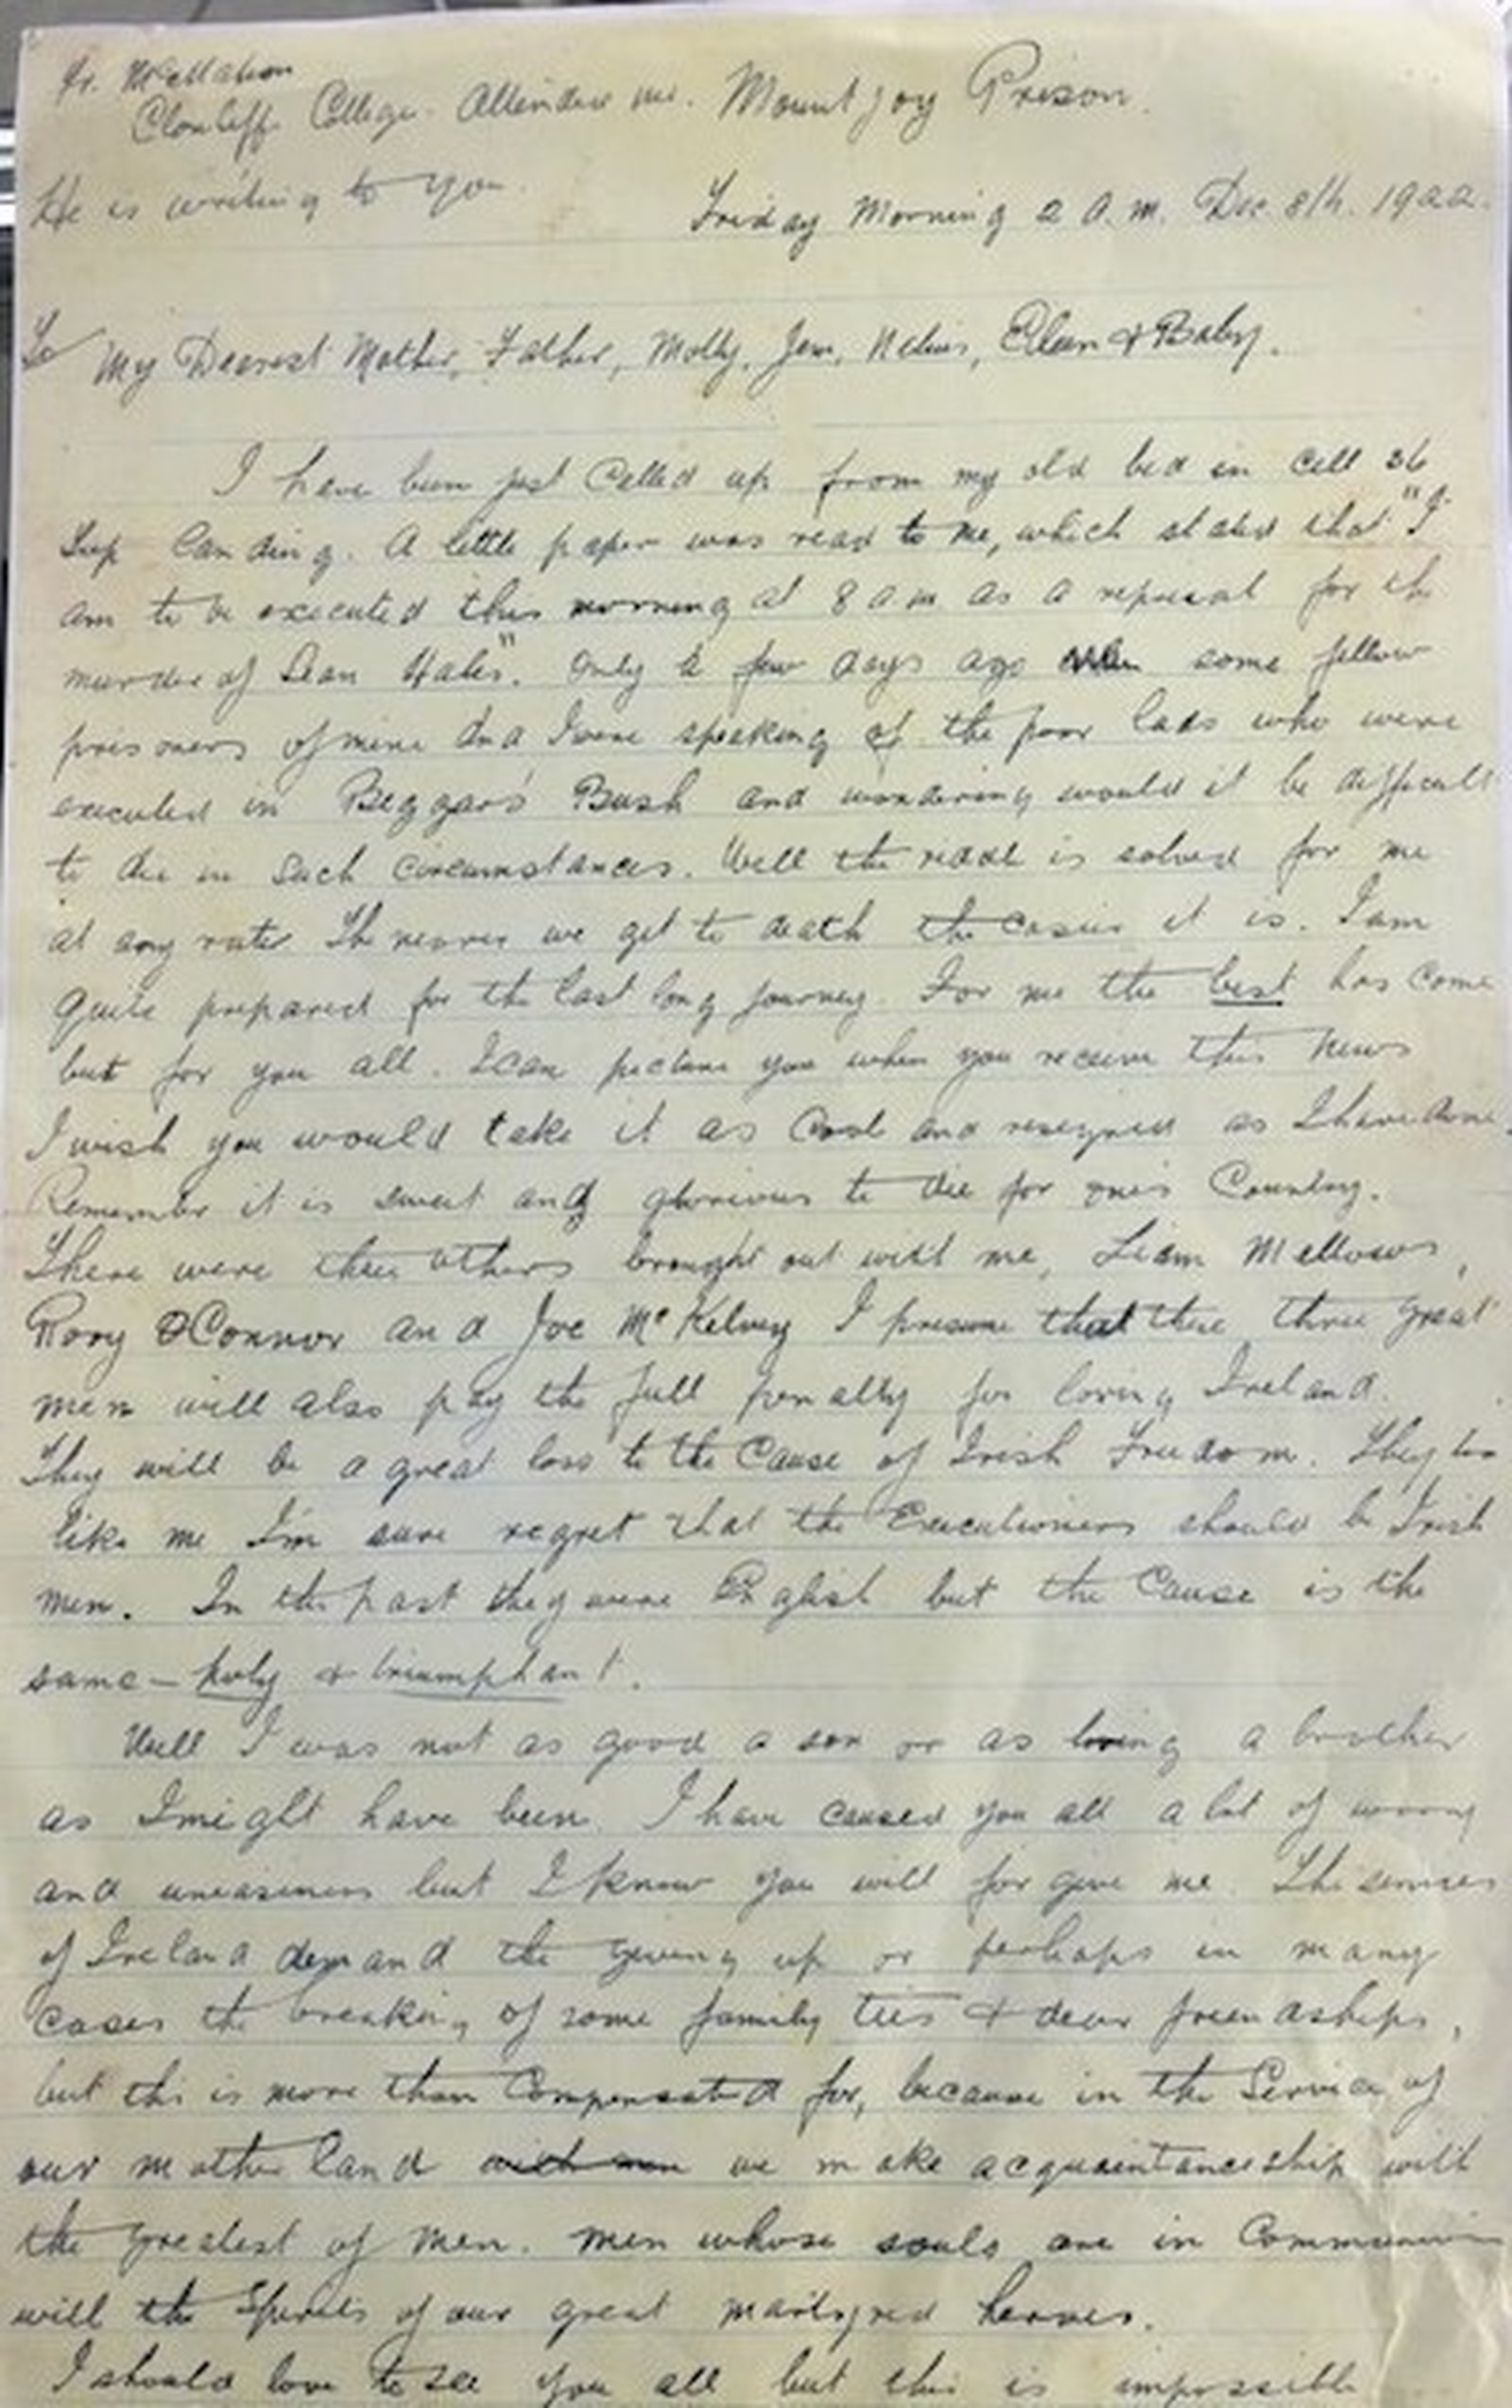 Fr. McMahon
Clonliffe College. Attended me. Mountjoy Prison.
He is writing to you.
Friday Morning 2 A.M. Dec 8th. 1922.
To My Dearest Mother, Father, Molly, Jem, Nelius, Eileen & Baby.
I have been just called up from my old bed in cell 36
Top Landing. A little paper was read to me, which stated that "I
am to be executed this morning at 8 am as a reprisal for the
murder of Sean Hales". Only a few days ago when some fellow
prisoners of mine and I were speaking of the poor lads who were
executed in Beggar's Bush and wondering would it be difficult
to die in such circumstances. Well the riddle is solved for me
at any rate. The nearer we get to death the easier it is. I am
quite prepared for the last long journey. For me the best has come
but for you all. I can picture you when you receive this news
I wish you would take it as cool and resigned as I have done.
Remember it is sweet and glorious to die for one's Country.
There were three others brought out with me, Liam Mellows,
Rory O'Connor and Joe McKelvey I presume that these three great
men will also pay the full penalty for loving Ireland.
They will be a great loss to the Cause of Irish Freedom. They too
like me I'm sure regret that the Executioners should be Irish
men. In the past they were English but the Cause is the
same - holy & triumphant.
Well I was not as good a son or as loving a brother
as I might have been. I have caused you all a lot of worry
and uneasiness but I know you will forgive me. The services
of Ireland demand the giving up or perhaps in many
cases the breaking of some family ties & dear friendships,
but this is more than compensated for, because in the Service of
our motherland we make acquaintanceship with
the greatest of men. men whose souls are in Communion
with the Spirits of our great martyred heroes.
I should love to see you all but this is impossible